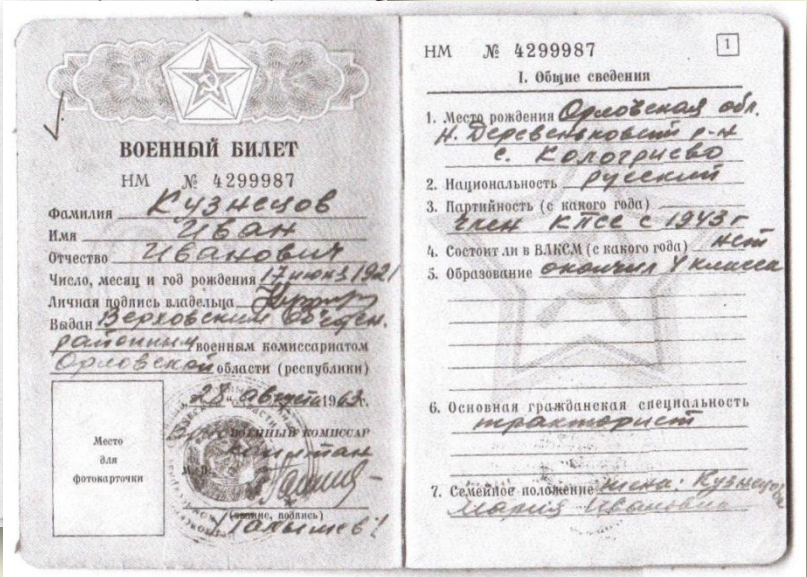 ВОЕННЫЙ БИЛЕТ
НМ № 4299987
Фамилия Кузнецов
Имя Иван
Отчество Иванович
Число, месяц и год рождения 17 июня 1921
Личная подпись владельца
Выдан Верховским объедин.
районным военным комиссариатом
Орловской области (республики)
„28" августа 1963г.
ВОЕННЫЙ КОМИССАР
капитан
М. П.
(звание, подпись)
Место
для
фотокарточки
НМ № 4299987
1
I. Общие сведения
1. Место рождения Орловская обл.
Н. Деревеньковский р-н
с. Кологриево
2. Национальность русский
3. Партийность (с какого года)
член КПСС с 1943 г
4. Состоит ли в ВЛКСМ (с какого года) нет
5. Образование окончил 4 класса
6. Основная гражданская специальность
тракторист
7. Семейное положение жена: Кузнецова
Мария Ивановна